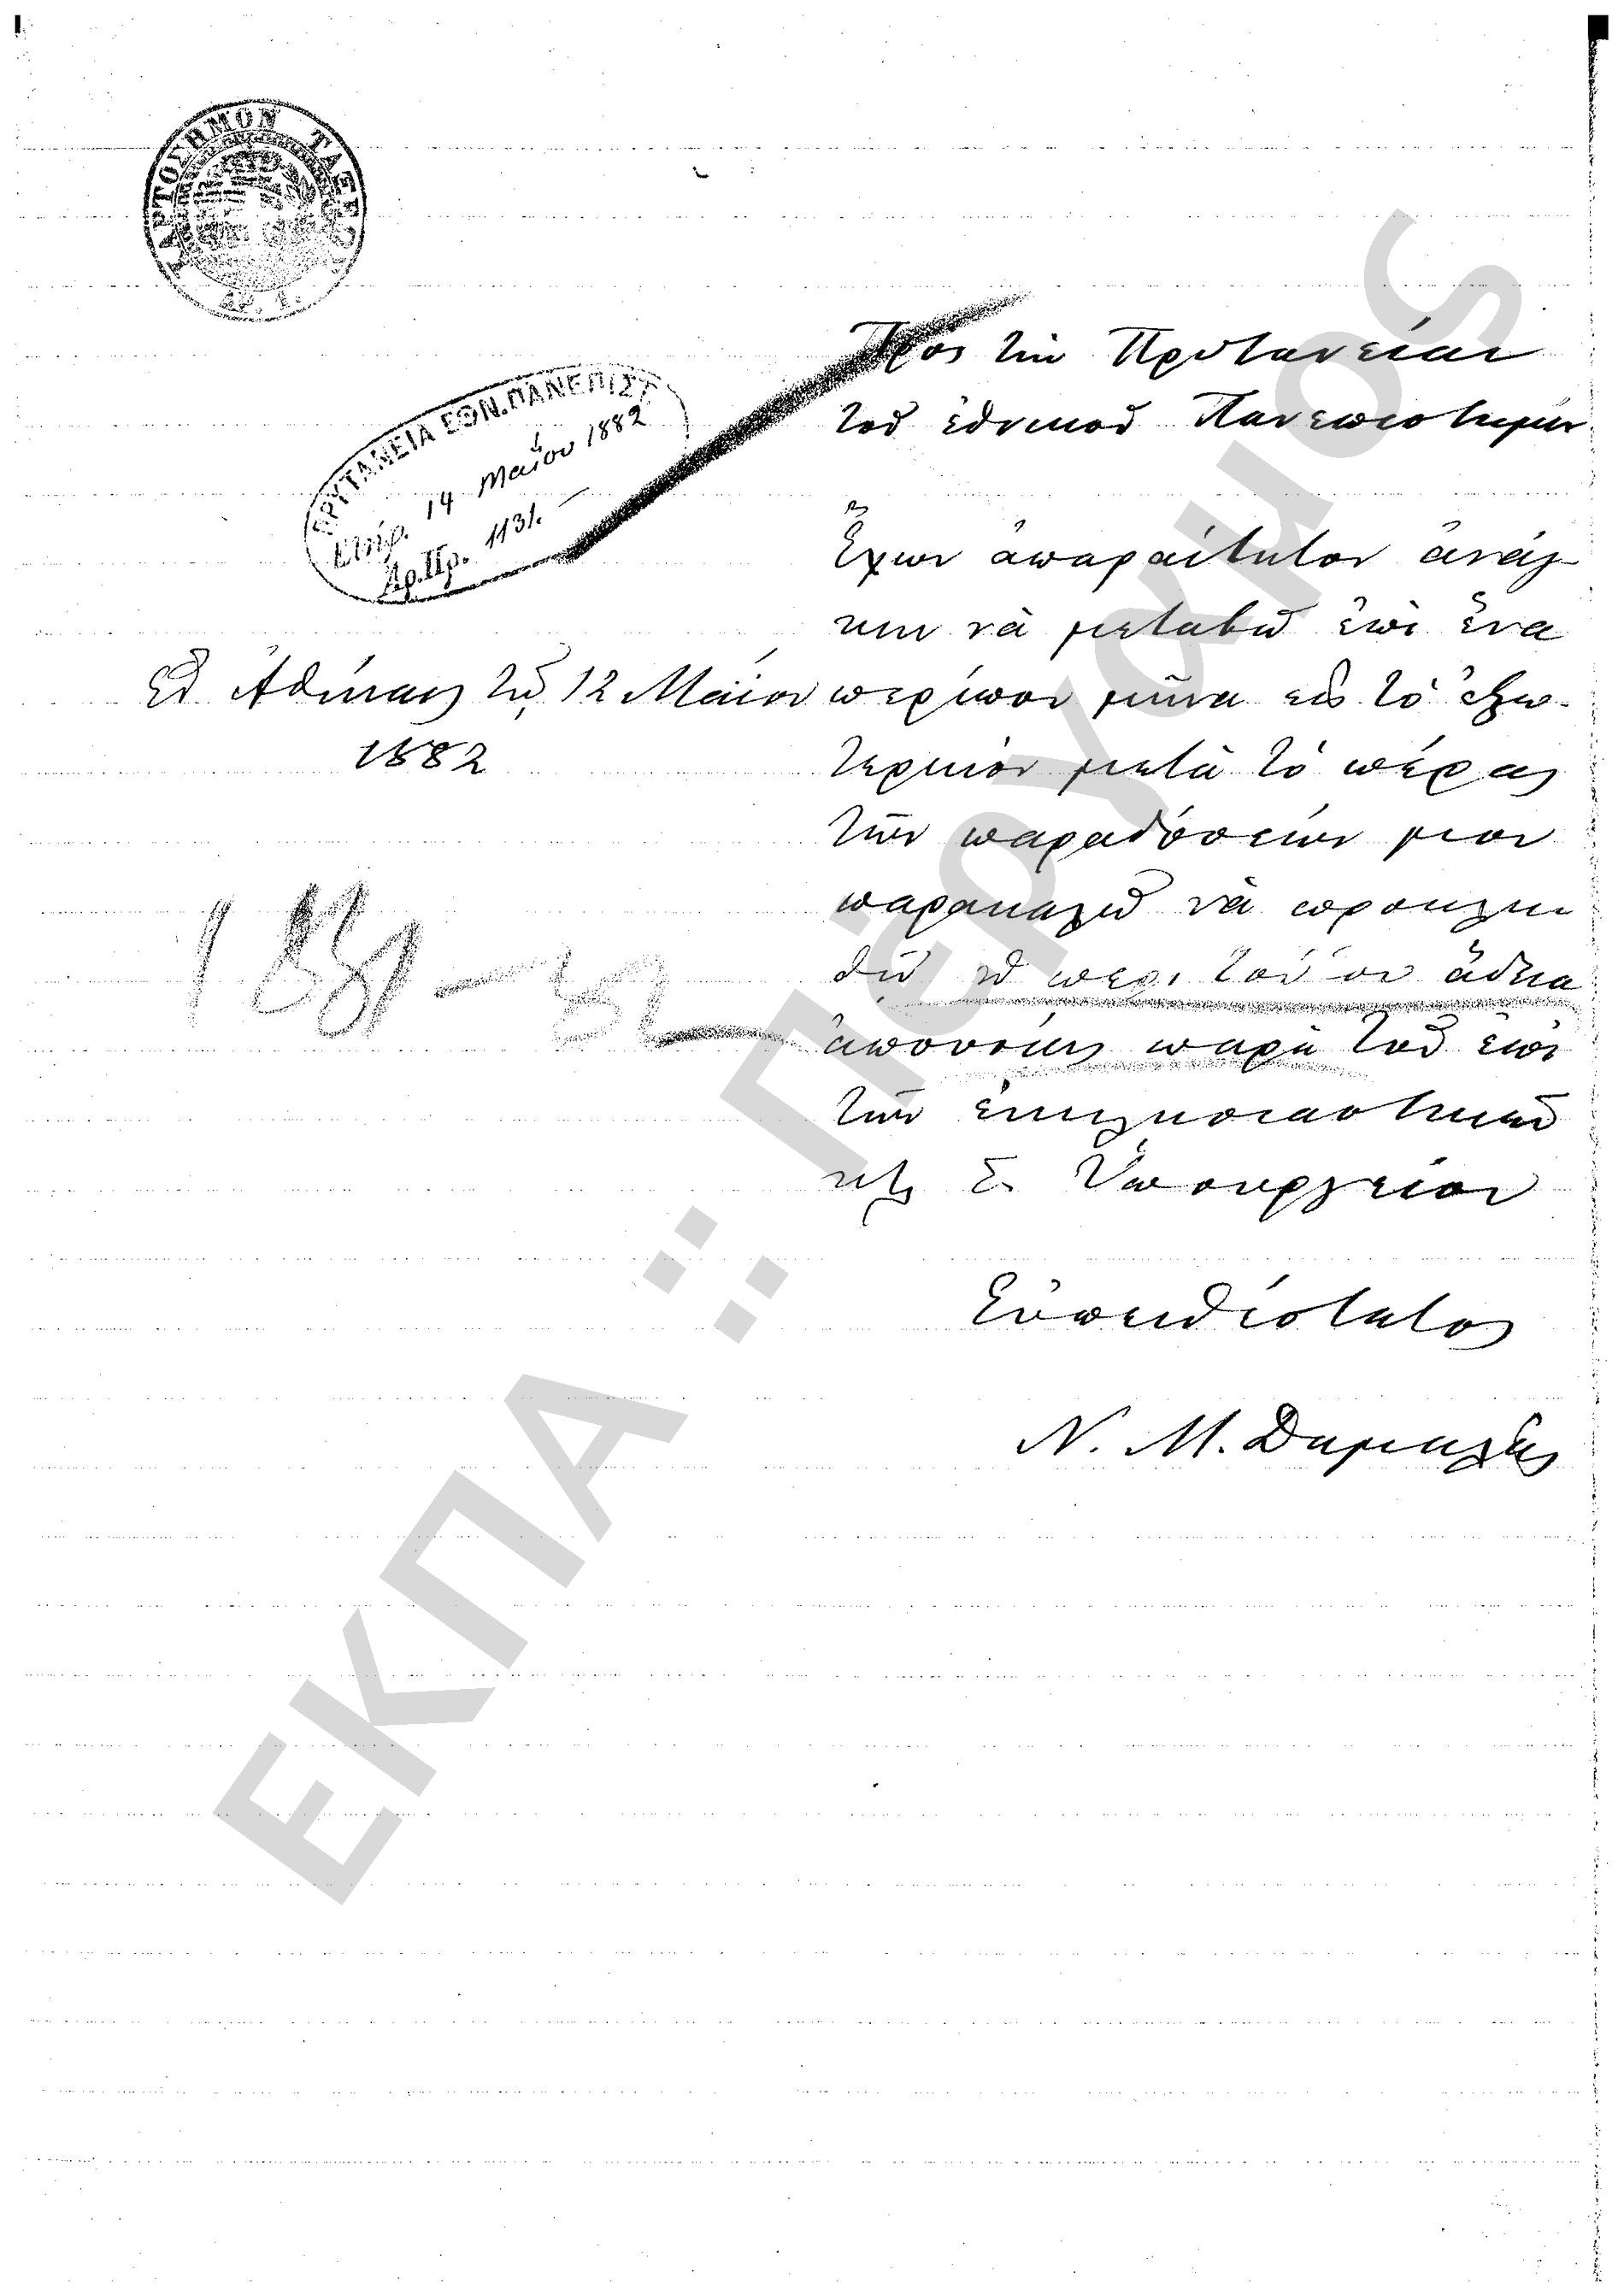 ΧΑΡΤΟΣΗΜΟΝ ΤΑΞΕΩΣ
ΔΡ. 1.
ΠΡΥΤΑΝΕΙΑ ΕΘΝ. ΠΑΝΕΠΙΣΤ
14 Μαΐου 1882
Ἀρ. Πρ. 1131.
Πρὸς τὴν Πρυτανείαν
τοῦ ἐθνικοῦ Πανεπιστημίου
Ἔχων ἀπαραίτητον ἀνάγ-
κην νὰ μεταβῶ ἐπὶ ἕνα
Ἐν Ἀθήναις τῇ 12 Μαΐου
1882
περίπου μῆνα εἰς τὸ ἐξω-
τερικὸν μετὰ τὸ πέρας
τῶν παραδόσεών μου
παρακαλῶ νὰ προκλη
θῇ περὶ τούτου ἄδεια
ἀπουσίας παρὰ τοῦ ἐπὶ
τῶν ἐκκλησιαστικῶν
κτλ Σ. Ὑπουργείου
1881-82
Εὐπειθέστατος
Ν. Μ. Δαμαλᾶς
ΕΚΠΑ :: Πέργαμος